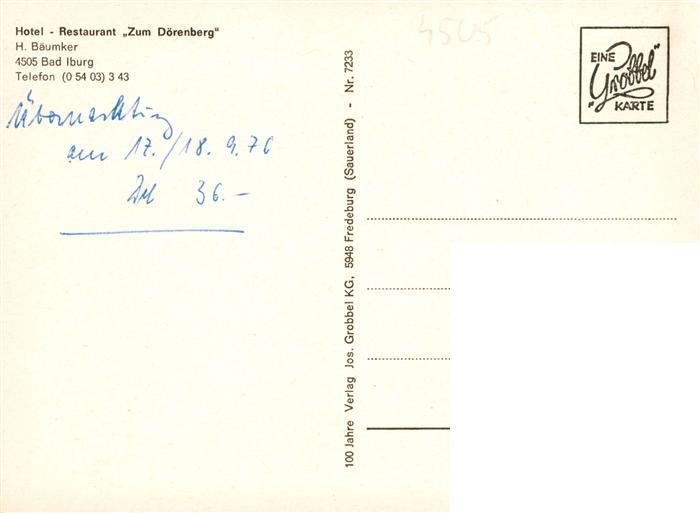 Hotel - Restaurant „Zum Dörenberg"
H. Bäumker
4505 Bad Iburg
Telefon (0 54 03) 3 43
Übernachtung
am 17./18. 9. 76
DM 36.-
4505
EINE
"Grobbel"
KARTE
100 Jahre Verlag Jos. Grobbel KG, 5948 Fredeburg (Sauerland) - Nr. 7233